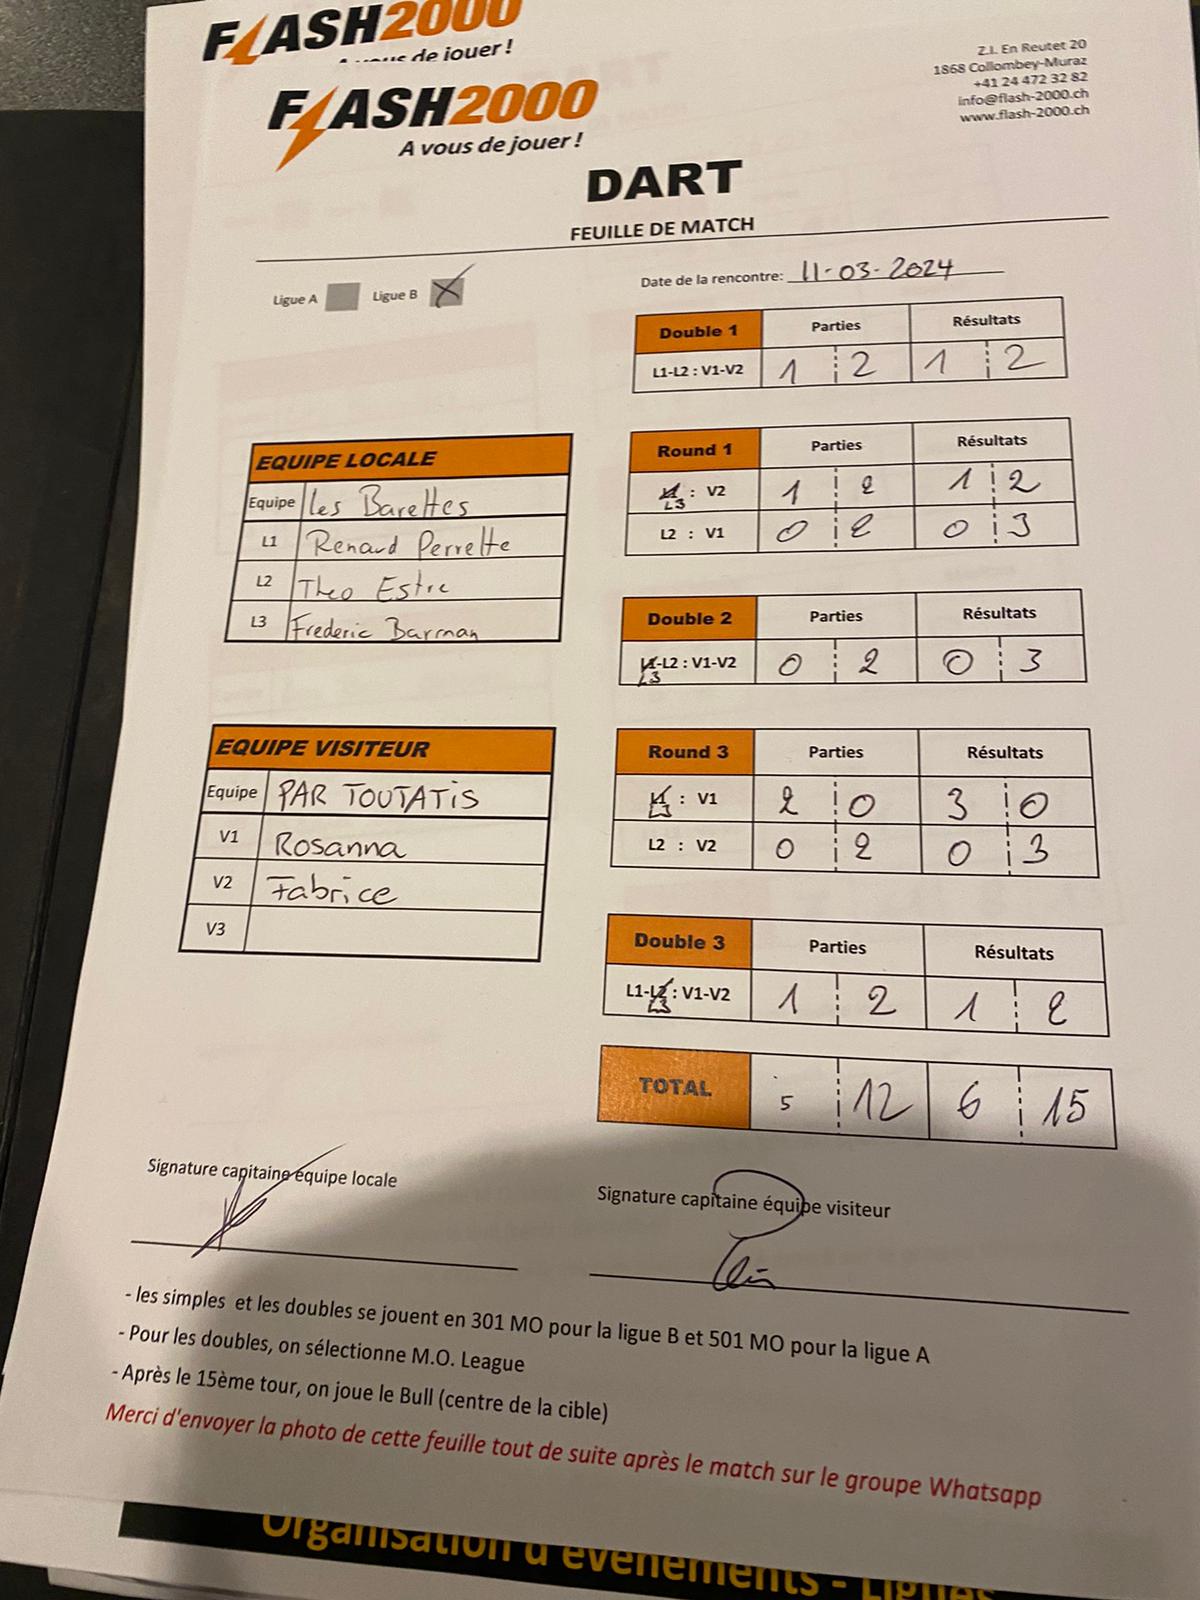 FLASH2000
A vous de jouer !
FLASH2000
A vous de jouer !
Z.I. En Reutet 20
1868 Collombey-Muraz
+41 24 472 32 82
info@flash-2000.ch
www.flash-2000.ch
DART
FEUILLE DE MATCH
Ligue A Ligue B
Date de la rencontre: 11-03-2024
Double 1 Parties Résultats
L1-L2 : V1-V2 1 2 1 2
EQUIPE LOCALE
Equipe Les Barettes
L1 Renard Perrette
L2 Theo Estre
L3 Frederic Barman
Round 1 Parties Résultats
L1 : V2 1 2 1 2
L3
L2 : V1 0 2 0 3
Double 2 Parties Résultats
L1-L2 : V1-V2 0 2 0 3
L3
EQUIPE VISITEUR
Equipe PAR TOUTATIS
V1 Rosanna
V2 Fabrice
V3
Round 3 Parties Résultats
L1 : V1 2 0 3 0
L3
L2 : V2 0 2 0 3
Double 3 Parties Résultats
L1-L2 : V1-V2 1 2 1 2
L3
TOTAL 5 12 6 15
Signature capitaine équipe locale
Signature capitaine équipe visiteur
- les simples et les doubles se jouent en 301 MO pour la ligue B et 501 MO pour la ligue A
- Pour les doubles, on sélectionne M.O. League
- Après le 15ème tour, on joue le Bull (centre de la cible)
Merci d'envoyer la photo de cette feuille tout de suite après le match sur le groupe Whatsapp
Organisation d'évènements - Ligues